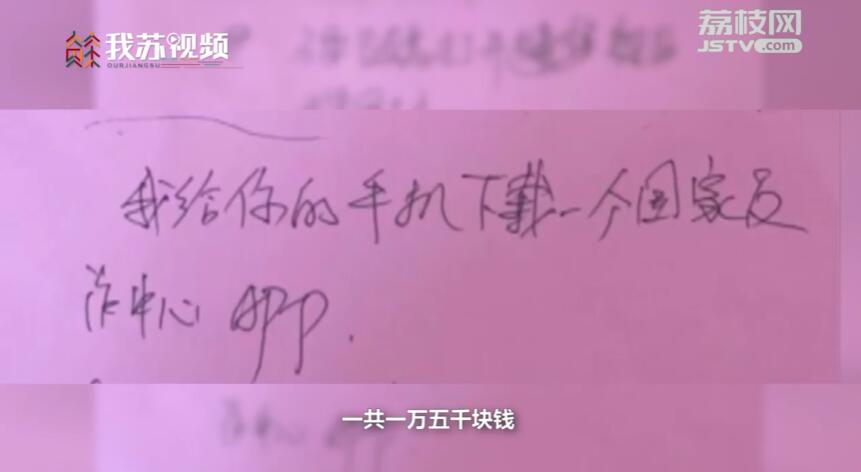 我苏视频
OURJIANGSU
荔枝网
JSTV.com
我给你的手机下载一个国家反
诈中心APP.
一共一万五千块钱